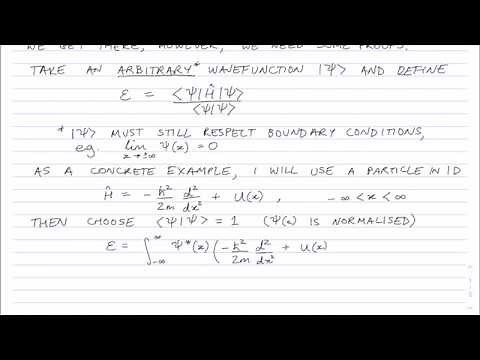 WE GET THERE, HOWEVER, WE NEED SOME PROOFS.
TAKE AN ARBITRARY* WAVEFUNCTION |Ψ> AND DEFINE
ε = <Ψ|Ĥ|Ψ> / <Ψ|Ψ>
* |Ψ> MUST STILL RESPECT BOUNDARY CONDITIONS,
eg. lim x→±∞ Ψ(x) = 0
AS A CONCRETE EXAMPLE, I WILL USE A PARTICLE IN 1D
Ĥ = -ħ²/2m d²/dx² + U(x) , -∞ < x < ∞
THEN CHOOSE <Ψ|Ψ> = 1 (Ψ(x) IS NORMALISED)
ε = ∫_{-∞}^{∞} Ψ*(x) (-ħ²/2m d²/dx² + U(x)